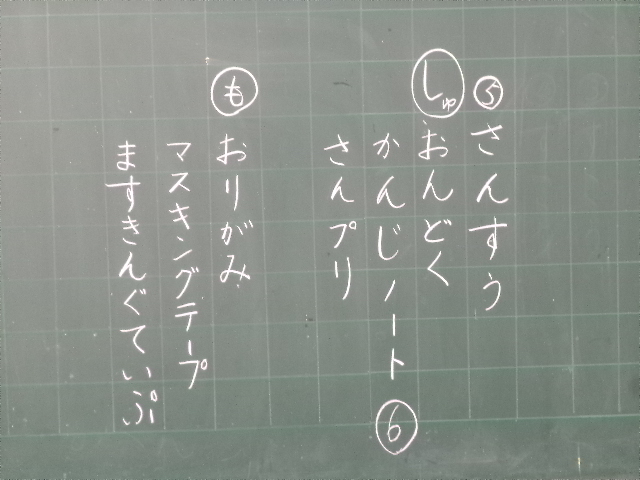 ⑤さんすう
しゅ おんどく
かんじノート⑥
さんプリ
も おりがみ
マスキングテープ
ますきんぐていぷ